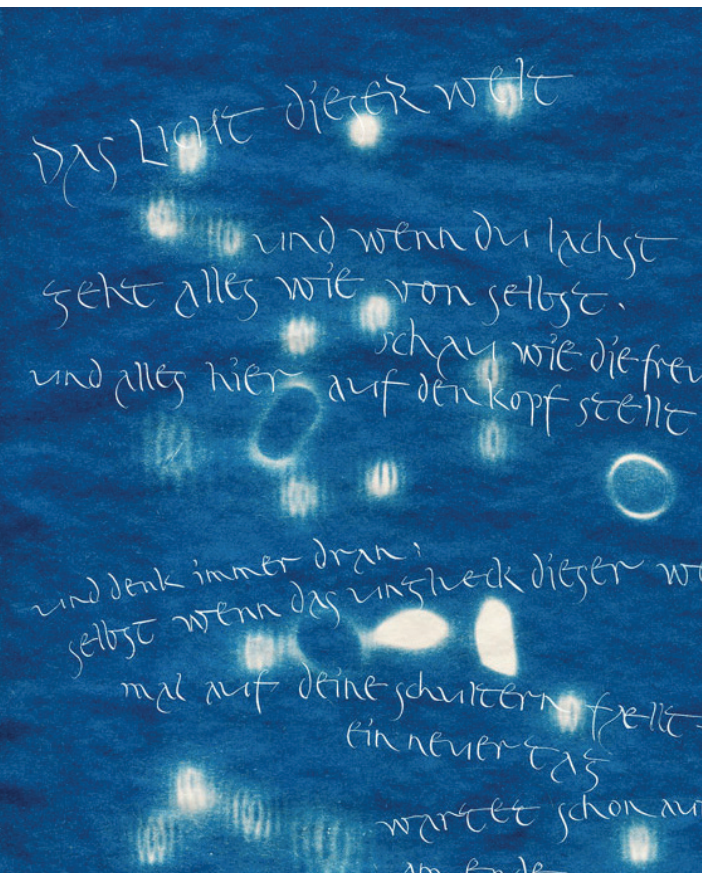 Das Licht dieser welt
und wenn du lachst
geht alles wie von selbst.
schau wie die freu
und alles hier auf den kopf stellt
und denk immer dran:
selbst wenn das unglueck dieser we
mal auf deine schultern faellt
ein neuer tag
wartet schon au
am ende